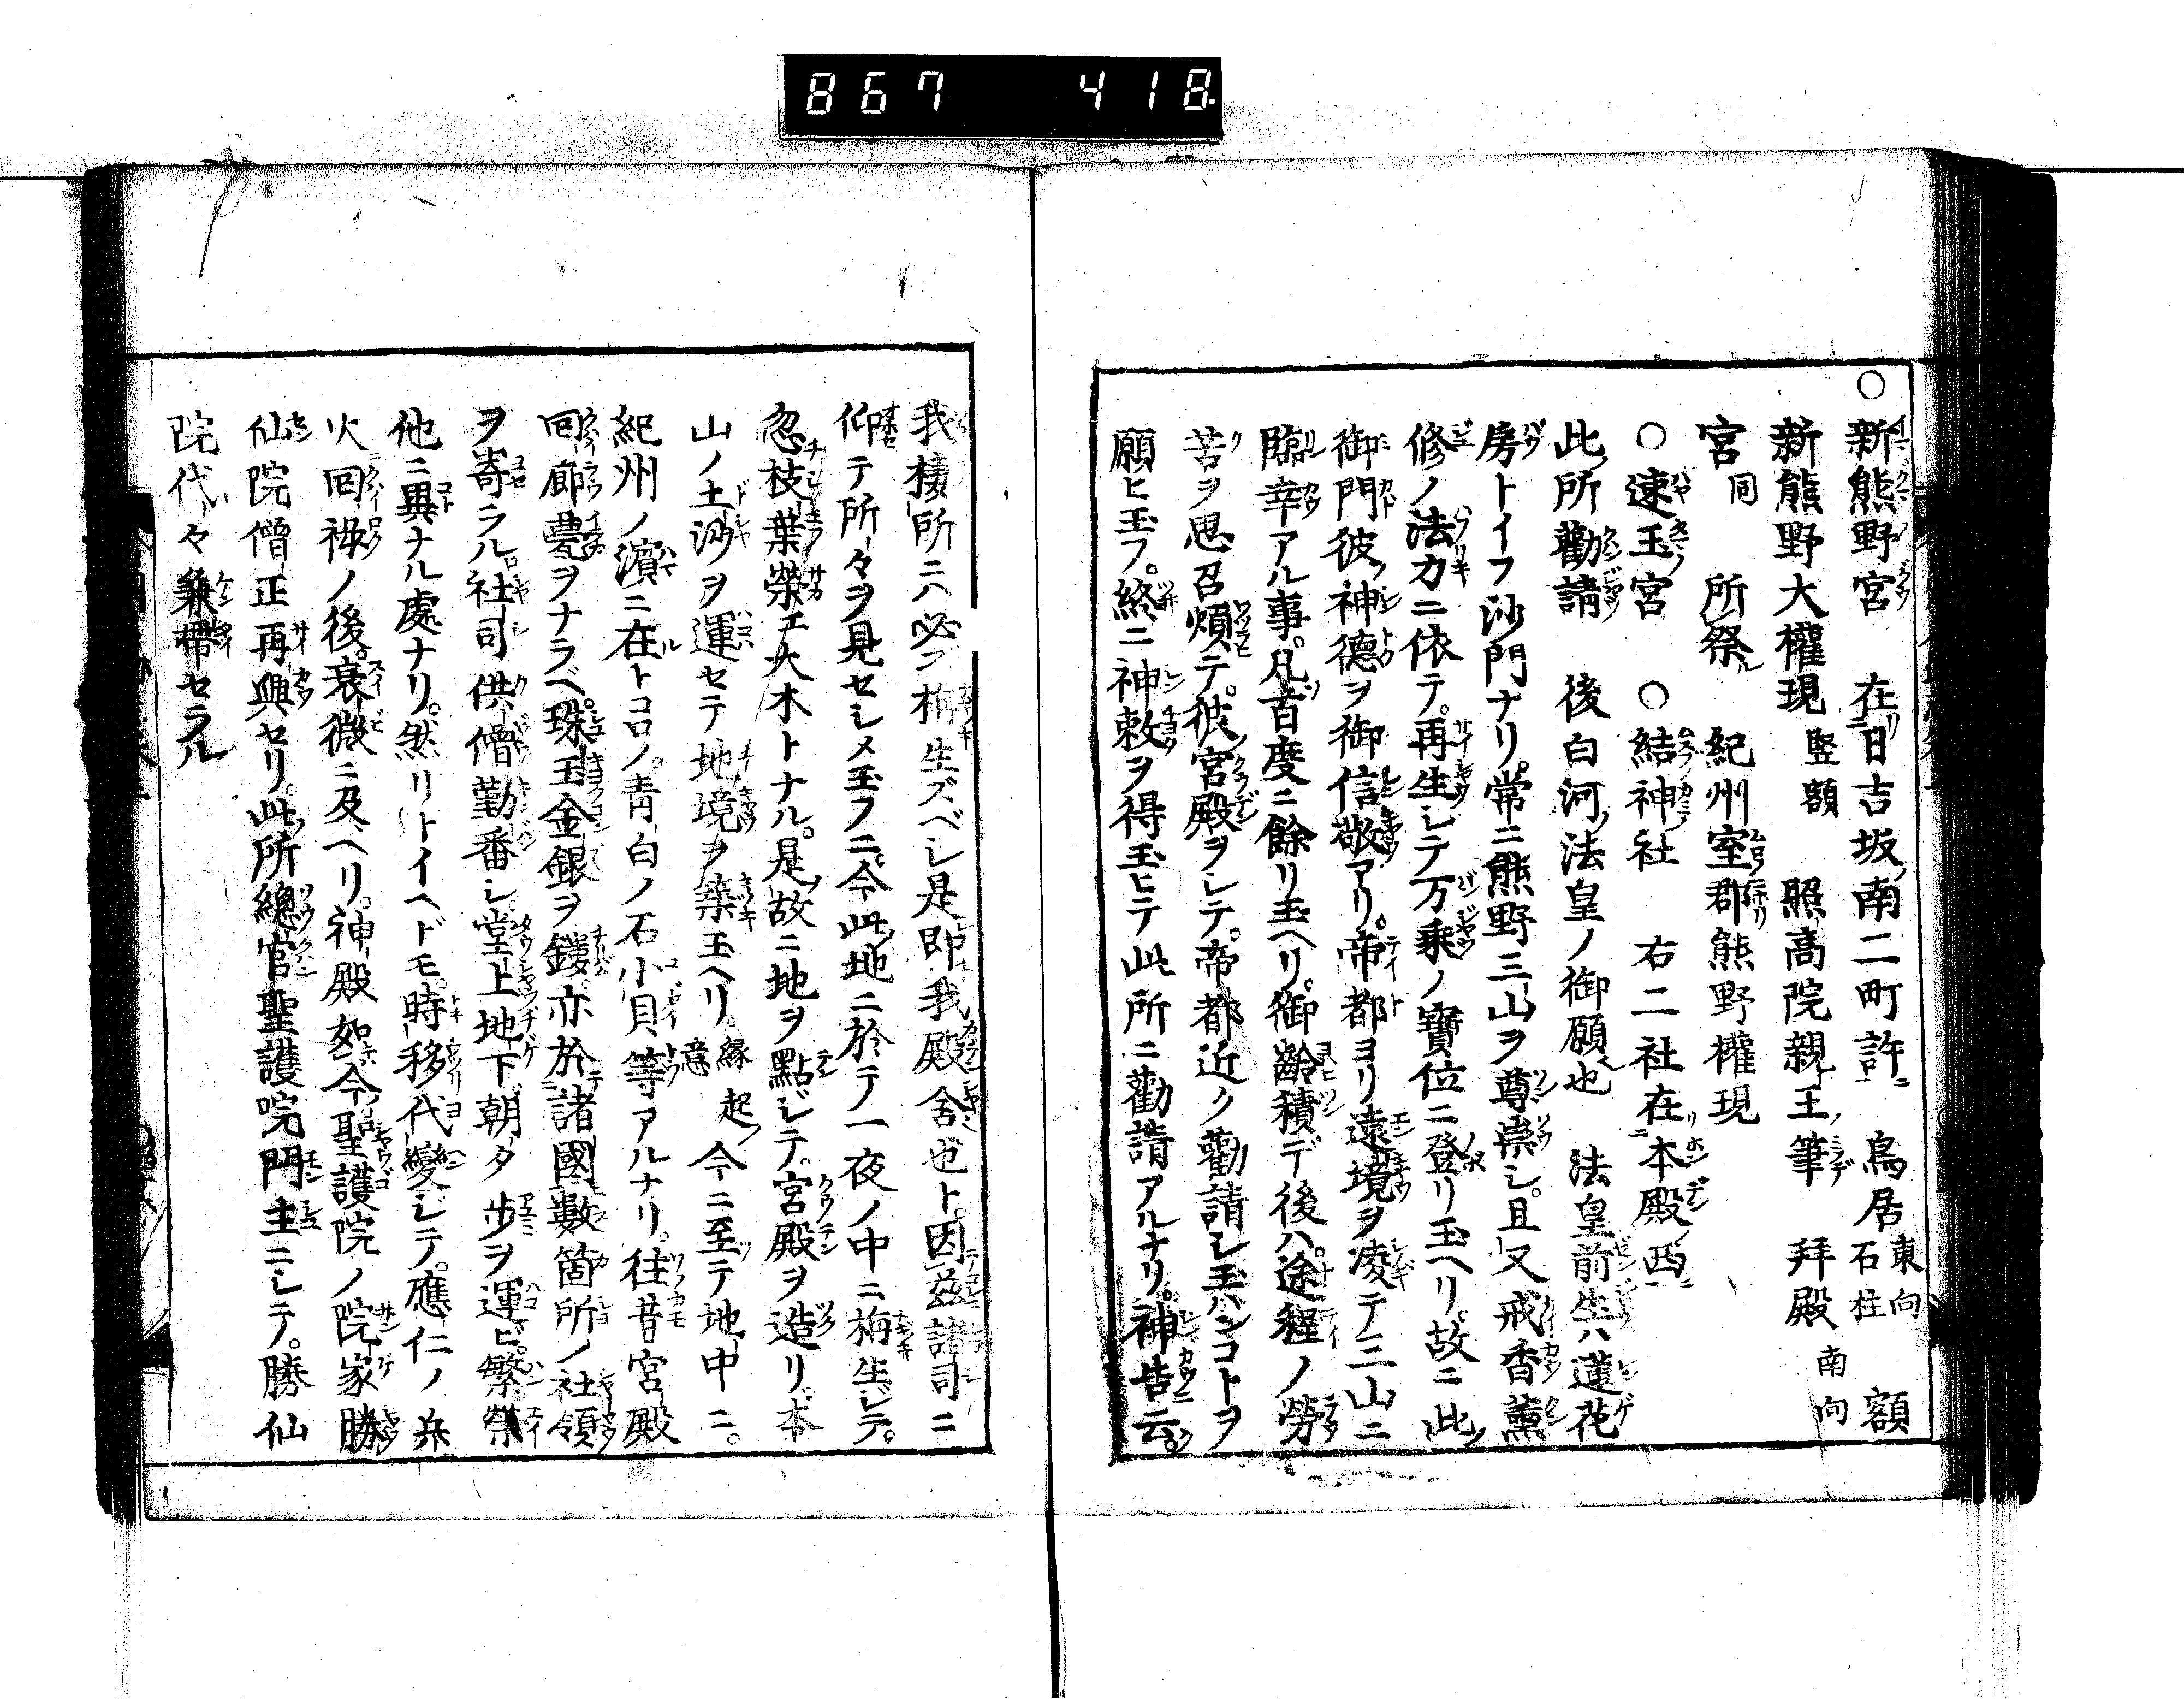 867 418
○新熊野宮 在日吉坂南二町許ニ 鳥居 東向 石柱 額
新熊野大權現 竪額 照高院親王ノ筆 拜殿 南向
宮 同 所祭ル 紀州室郡熊野權現
○速玉宮 ○結神社 右二社在本殿ノ西ニ
此所勸請 後白河ノ法皇ノ御願也 法皇前生ハ蓮花
房トイフ沙門ナリ。常ニ熊野三山ヲ尊崇シ。且又戒香薫
修ノ法力ニ依テ。再生シテ万乗ノ寶位ニ登リ玉ヘリ。故ニ此
御門彼ノ神德ヲ御信敬アリ。帝都ヨリ遠境ヲ凌テ三山ニ
臨幸アル事。凡百度ニ餘リ玉ヘリ。御齡積デ後ハ。途程ノ勞
苦ヲ思召煩テ。彼宮殿ヲシテ。帝都近ク勸請シ玉ハンコトヲ
願ヒ玉フ。終ニ神敕ヲ得玉ヒテ此所ニ勸請アルナリ。神告云。
我棲所ニハ必ズ梛生ズベシ是即我殿舍也ト。因茲諸司ニ
仰テ所々ヲ見セシメ玉フニ。今此地ニ於テ一夜ノ中ニ梅生ジテ。
忽枝葉榮エ大木トナル。是故ニ地ヲ點ジテ。宮殿ヲ造リ。本
山ノ土沙ヲ運セテ地境ヲ築玉ヘリ。縁起ノ意 今ニ至テ地中ニ。
紀州ノ濱ニ在トコロノ。青白ノ石小貝等アルナリ。往昔宮殿
回廊甍ヲナラベ。珠玉金銀ヲ鏤。亦於諸國數箇所ノ社領
ヲ寄ラル社司供僧勤番シ。堂上地下。朝夕歩ヲ運ビ。繁榮
他ニ異ナル處ナリ。然リトイヘドモ。時移代變シテ。應仁ノ兵
火回祿ノ後。衰微ニ及ヘリ。神殿如今聖護院ノ院家勝
仙院僧正再興セリ。此所總官聖護院門主ニシテ。勝仙
院代々兼帶セラル